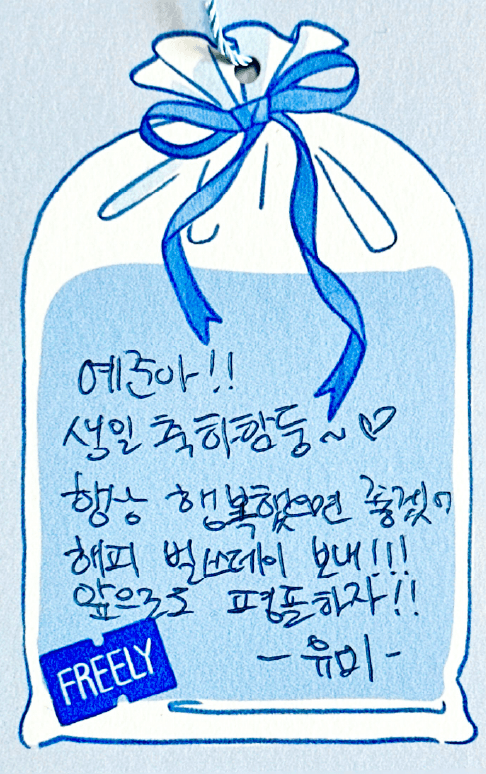 예준아!!
생일 축하함둥~♡
항상 행복했으면 좋겠어
해피 벌쓰데이 보내!!!
앞으로도 평폴하자!!
-유미-
FREELY